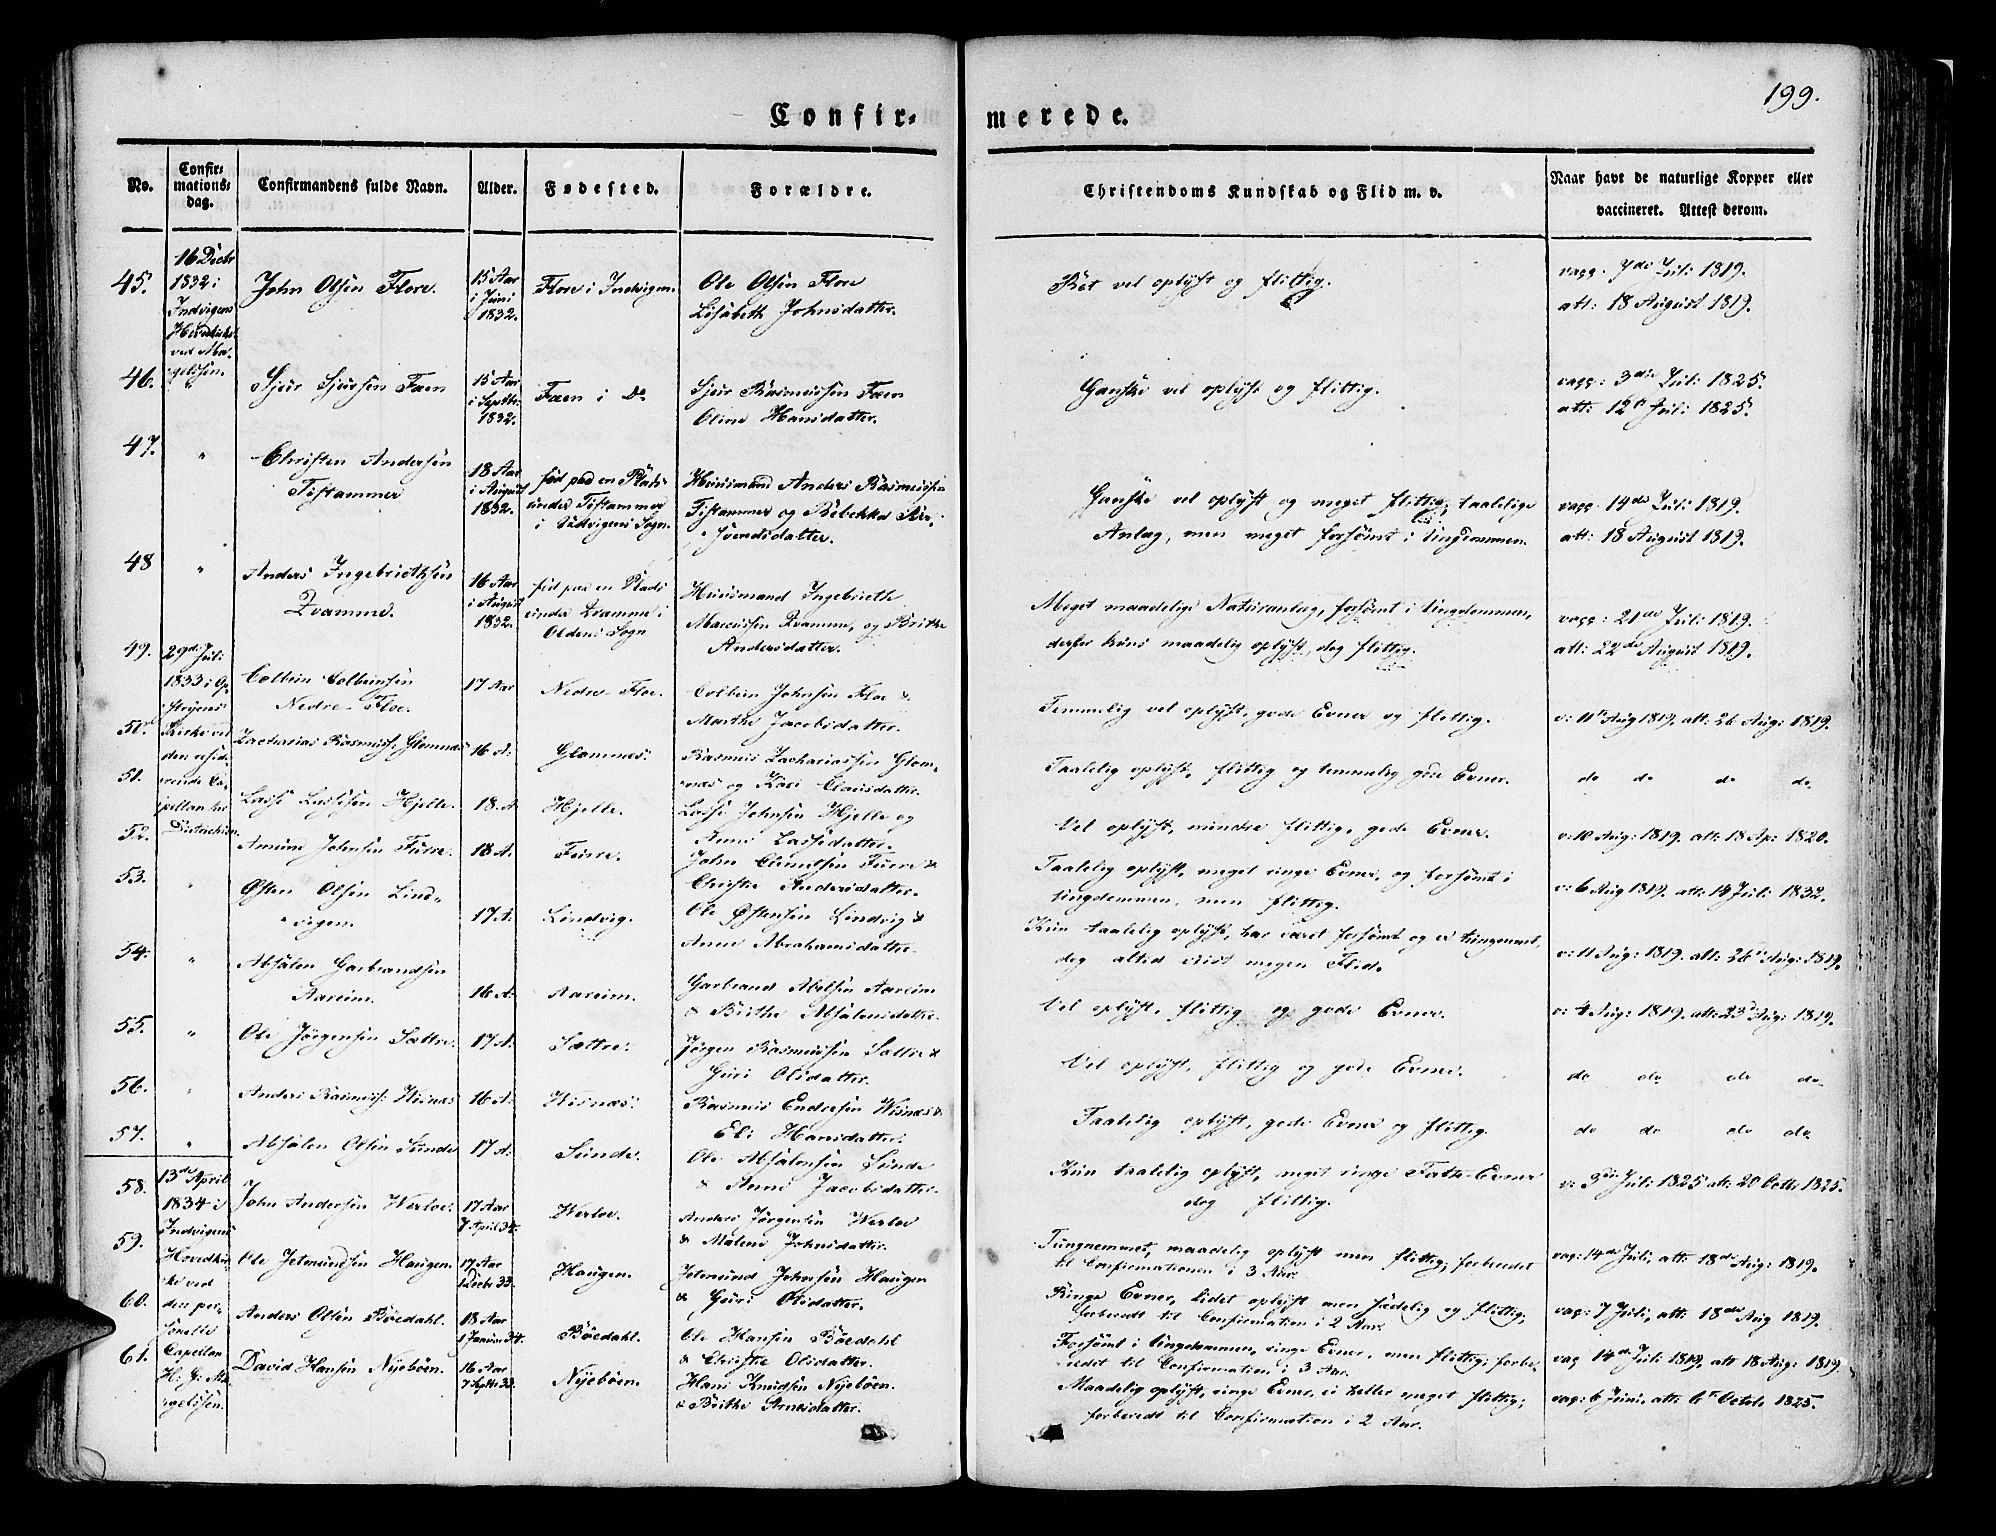 199.
Confirmerede.
No.
Confirmationsdag.
Confirmandens fulde Navn.
Alder.
Fødested.
Forældre.
Christendoms Kundskab og Flid m. v.
Naar havt de naturlige Kopper eller vaccineret. Attest derom.
45. 16 Decbr 1832 i Indvigens ved Magelssen. John Olsen Flore. 15 Aar i Juni 1832. Flore i Indvigen. Ole Olsen Flore
Lisabeth Johnsdatter. vel oplyst og flittig. vacc: 7de Juli 1819.
att: 18 August 1819.
46. " Sjur Sjursen Faen 15 Aar i Septbr 1832. Faen i Do Sjur Rasmussen Faen
Oline Hansdatter. Ganske vel oplyst og flittig. vacc: 3die Juli 1825.
att: 12te Juli 1825.
47. " Christen Andersen
Tistammer 18 Aar i August 1832. fød paa en Plads
under Tistammer
i Udvigens Sogn. Huusmand Anders Rasmussen
Tistammer og Rebekka
Sivendsdatter. Ganske vel oplyst og meget flittig; taalelige
Anlæg, men meget forsømt i Ungdommen. vacc: 14de Juli 1819.
att: 18 August 1819.
48 " Anders Ingebrigtsen
Qvamme. 16 Aar i August 1832. fød paa en Plads
under Qvamme i
Oldens Sogn Huusmand Ingebrigt
Qvamme, og Brithe
Andersdatter. Meget maadelige Naturanlæg, forsømt i Ungdommen,
derfor kuns maadelig oplyst, dog flittig. vacc: 21de Juli: 1819.
att: 22de August 1819.
49. Juli 1833 i Opstryens Kirke ved den residerende Capellan Colbein Colbeinsen
Nedre-Floe. 17 Aar Nedre Floe. Colbein Johnsen Floe &
Marthe Jacobsdatter. Temmelig vel oplyst, gode Evner og flittig. v: 11te Aug 1819. att: 26 Aug: 1819.
50. Zacharias Rasmuss: Glomnæs 16 A: Glomnæs: Rasmus Zachariassen Glom-
næs og Kari Clausdatter. Taalelig oplyst, flittig og temmelig gode Evner. do do do do
51. Lasse Lassesen Hjelle. 18. A Hjelle. Lasse Johnsen Hjelle og
Anne Lassedatter. Vel oplyst, mindre flittig, gode Evner. v: 10 Aug: 1819. att: 18 Ap: 1820.
52. Amund Johnsen Furre. 18 A. Furre. John Furre &
Christie Andersdatter. Taalelig oplyst, meget ringe Evner, og forsømt i
Ungdommen, men flittig. v: 6 Aug 1819. att: 14 Juli: 1832.
53. " Østen Olsen Lind-
vigen. 17 A. Lindvig. Ole Østensen Lindvig &
Anne Abrahamsdatter. Kun taalelig oplyst, har været forsømt og er tungnemmet,
dog altid viist megen Flid. v: 11 Aug: 1819. att: 26 Aug: 1819.
54. " Absalon Garbrandsen
Aareim. 16 A: Aareim. Garbrand Abelsen Aareim
& Brithe Absalonsdatter. Vel oplyst, flittig og gode Evner. v: 4 Aug: 1819. att: 23 Aug: 1819.
55. " Ole Jörgensen Sættre. 17 A. Sættre. Jörgen Rasmussen Sættre &
Guri Olsdatter. Vel oplyst, flittig og gode Evner. do do do do
56. " Anders Rasmuss: Wisnæs 16 A: Wisnæs: Rasmus Endresen Wisnæs &
Eli Hansdatter. Taalelig oplyst, gode Evner og flittig. do do do do.
57. " Absalon Olsen Sunde 17 A: Sunde. Ole Absalonsen Sunde
& Anne Jacobsdatter. Kun taalelig oplyst, meget ringe Evner
dog flittig. v: 3die Juli: 1825 att: 20 Octb: 1825.
58. 13de April 1834 i Indvigens Hovedkirke ved den personelle Capellan H. G. Magelssen. John Andersen Werloe. 17 Aar 7 April 34. Werloe. Anders Jörgensen Werloe
& Malene Johnsdatter. Tungnemmet, maadelig oplyst men flittig; forberedt
til Confirmationen i 3 Aar. vac: 14de Juli, att: 18de Aug: 1819.
59. Ole Jetmundsen Haugen. 17 Aar Decbr 33. Haugen. Jetmund Johnsen Haugen
& Guri Olsdatter. Ringe Evner, lidet oplyst men sædelig og flittig;
forberedt til Confirmationen i 2 Aar. vac: 7 Juli, att: 18de Aug 1819.
60. Anders Olsen Böedahl. 18 Aar 1 Januar 34. Böedahl. Ole Hansen Böedahl
& Christie Olsdatter. Forsømt i Ungdommen, ringe Evner, men flittig; forbe-
redet til Confirmationen i 3 Aar. vac 14de Juli: 1819. att 18 Aug: 1819.
61. David Hansen Nyebøen. 16 Aar 7 Septbr 33. Nyebøen. Hans Knudsen Nyebøen.
& Brithe Arnesdatter. Maadelig oplyst, ringe Evner, ei heller meget flittig;
forberedt til Confirmation i 2 Aar. vac: 6 Juni, att: 6te Octob: 1825.